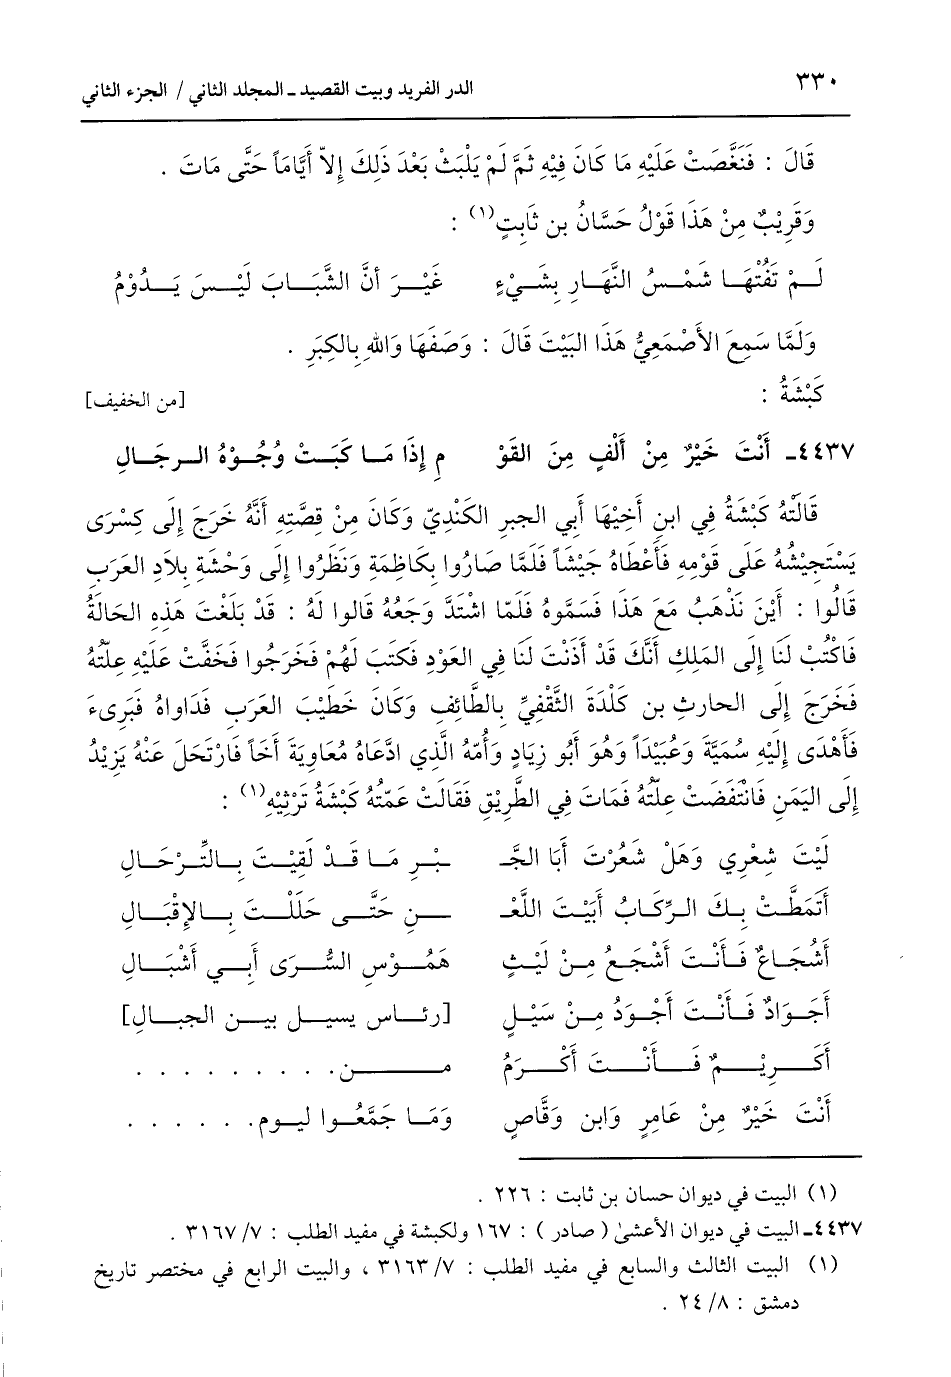 ٣٣٠
الدر الفريد وبيت القصيد ـ المجلد الثاني / الجزء الثاني
قَالَ : فَنَغَّصَتْ عَلَيْهِ مَا كَانَ فِيْهِ ثمَّ لَمْ يَلْبَثْ بَعْدَ ذَلِكَ إِلاّ أَيَّامَاً حَتَّى مَاتَ .
وَقَرِيْبٌ مِنْ هَذَا قَوْلُ حَسَّانُ بن ثَابِتٍ(١) :
لَمْ تَفُتْهَا شَمْسُ النَّهَارِ بِشَيْءٍ غَيْرَ أنَّ الشَّبَابَ لَيْسَ يَدُوْمُ
وَلَمَّا سَمِعَ الأَصْمَعِيُّ هَذَا البَيْتَ قَالَ : وَصَفَهَا وَاللهِ بِالكِبَرِ .
كَبْشَةُ : [من الخفيف]
٤٤٣٧ـ أَنْتَ خَيْرٌ مِنْ أَلْفٍ مِنَ القَوْ مِ إِذَا مَا كَبَتْ وُجُوْهُ الرجَالِ
قَالَتْهُ كَبْشَةُ فِي ابنِ أَخِيْهَا أَبِي الجبرِ الكَنْدِيّ وَكَانَ مِنْ قِصَّتِهِ أَنَّهُ خَرَجَ إِلَى كِسْرَى
يَسْتَجِيْشُهُ عَلَى قَوْمِهِ فَأَعْطَاهُ جَيْشَاً فَلَمَّا صَارُوا بِكَاظِمَةِ وَنَظَرُوا إِلَى وَحْشَةِ بِلاَدِ العَرَبِ
قَالُوا : أَيْنَ نَذْهَبُ مَعَ هَذَا فَسَمُّوهُ فَلَمّا اشْتَدَّ وَجَعُهُ قَالوا لَهُ : قَدْ بَلَغْتَ هَذِهِ الحَالَةُ
فَاكْتُبْ لَنَا إِلَى المَلِكِ أَنَّكَ قَدْ أَذِنْتَ لَنَا فِي العَوْدِ فَكَتبَ لَهُمْ فَخَرَجُوا فَخَفَّتْ عَلَيْهِ عِلَّتُهُ
فَخَرَجَ إِلَى الحارثِ بن كَلْدَةَ الثَّقْفِيِّ بِالطَّائِفِ وَكَانَ خَطِيْبَ العَرَبِ فَدَاواهُ فَبَرىءَ
فَأَهْدَى إِلَيْهِ سُمَيَّةَ وَعُبَيْدَاً وَهُوَ أَبُو زِيَادٍ وَأُمّهُ الَّذِي ادَّعَاهُ مُعَاوِيَةَ أَخَاً فَارْتَحَلَ عَنْهُ يَزِيْدُ
إِلَى اليَمَنِ فَانْتَفَضَتْ عِلَّتُهُ فَمَاتَ فِي الطَّرِيْقِ فَقَالَتْ عَمَّتُهُ كَبْشَةُ تَرْثِيْهِ(١) :
لَيْتَ شِعْرِي وَهَلْ شَعُرْتَ أَبَا الجَـ ـبْرِ مَا قَدْ لَقِيْتَ بِالتِّرْحَالِ
أَتَمَطَّتْ بِكَ الرِّكَابُ أَبَيْتَ اللَّعْـ ـنَ حَتَّى حَلَلْتَ بِالإِقْبَالِ
أَشُجَاعٌ فَأَنْتَ أَشْجَعُ مِنْ لَيْثٍ هَمُوْسِ السُّرَى أَبِي أَشْبَالِ
أَجَوَادٌ فَأَنْتَ أَجْوَدُ مِنْ سَيْلٍ [رئاس يسيل بين الجبالِ]
أَكَرِيْمٌ فَأَنْتَ أَكْرَمُ مـن . . . . . . . . .
أَنْتَ خَيْرٌ مِنْ عَامِرٍ وَابن وَقَّاصٍ وَمَا جَمَّعُوا ليوم . . . . . .
(١) البيت في ديوان حسان بن ثابت : ٢٢٦ .
٤٤٣٧ـ البيت في ديوان الأعشىٰ ( صادر ) : ١٦٧ ولكبشة في مفيد الطلب : ٣١٦٧/٧ .
(١) البيت الثالث والسابع في مفيد الطلب : ٣١٦٣/٧ ، والبيت الرابع في مختصر تاريخ
دمشق : ٢٤/٨ .